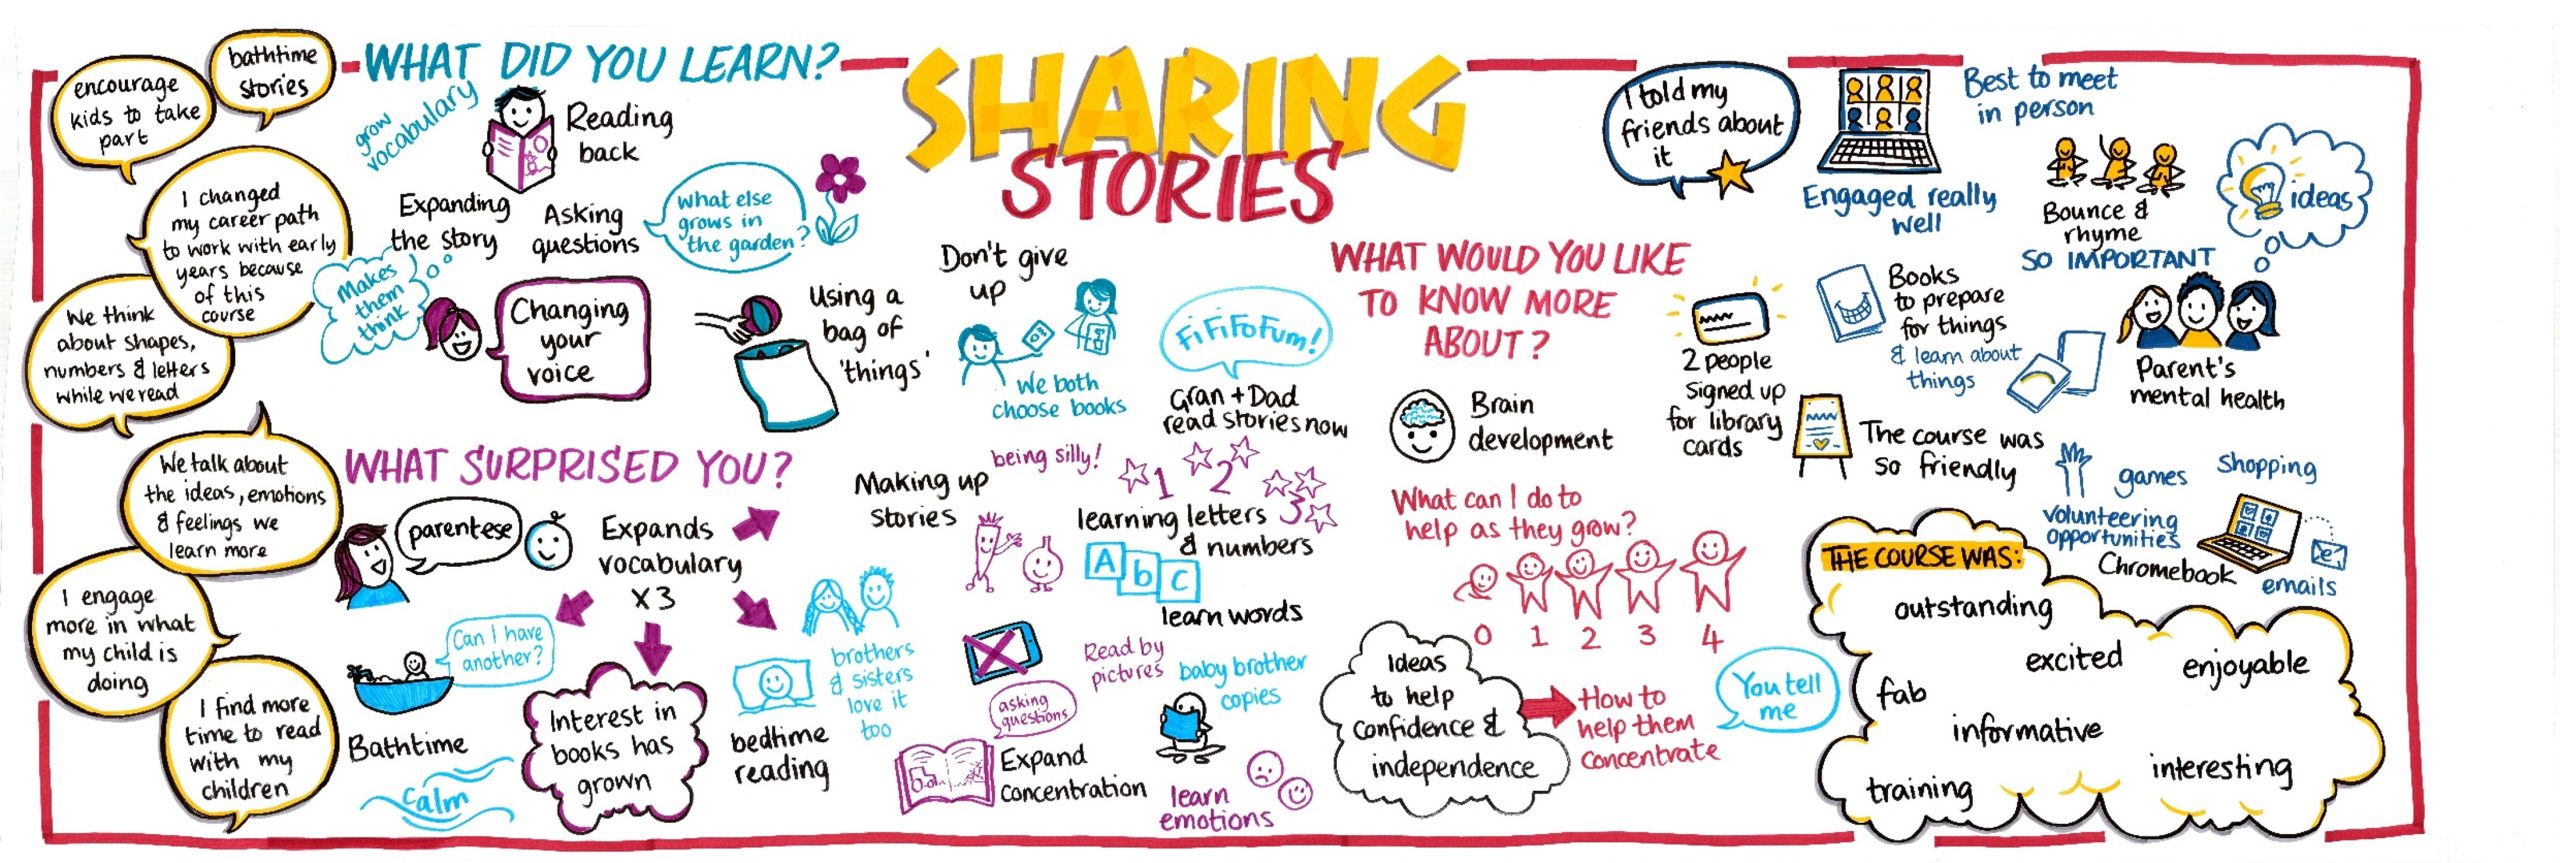 SHARING
STORIES
encourage
kids to take
part
bathtime
stories
I changed
my career path
to work with early
years because
of this
course
We think
about shapes,
numbers & letters
while we read
We talk about
the ideas, emotions
& feelings we
learn more
I engage
more in what
my child is
doing
I find more
time to read
with my
children
WHAT DID YOU LEARN?
grow
vocabulary
Reading
back
Expanding
the story
Asking
questions
What else
grows in
the garden?
Makes
them
think
Changing
your
voice
Using a
bag of
'things'
Don't give
up
We both
choose books
FiFiFoFum!
Gran + Dad
read stories now
WHAT SURPRISED YOU?
parentese
Expands
vocabulary
x3
Can I have
another?
Bathtime
calm
Interest in
books has
grown
brothers
& sisters
love it
too
bedtime
reading
Making up
stories
being silly!
1 2 3
learning letters
& numbers
A b C
learn words
Read by
pictures
asking
questions
Expand
concentration
baby brother
copies
learn
emotions
WHAT WOULD YOU LIKE
TO KNOW MORE
ABOUT?
Brain
development
What can I do to
help as they grow?
0 1 2 3 4
Ideas
to help
confidence &
independence
How to
help them
concentrate
You tell
me
I told my
friends about
it
Engaged really
well
Best to meet
in person
Bounce &
rhyme
SO IMPORTANT
ideas
2 people
signed up
for library
cards
Books
to prepare
for things
& learn about
things
Parent's
mental health
The course was
so friendly
games
Shopping
volunteering
opportunities
Chromebook
emails
THE COURSE WAS:
outstanding
excited
enjoyable
fab
informative
interesting
training